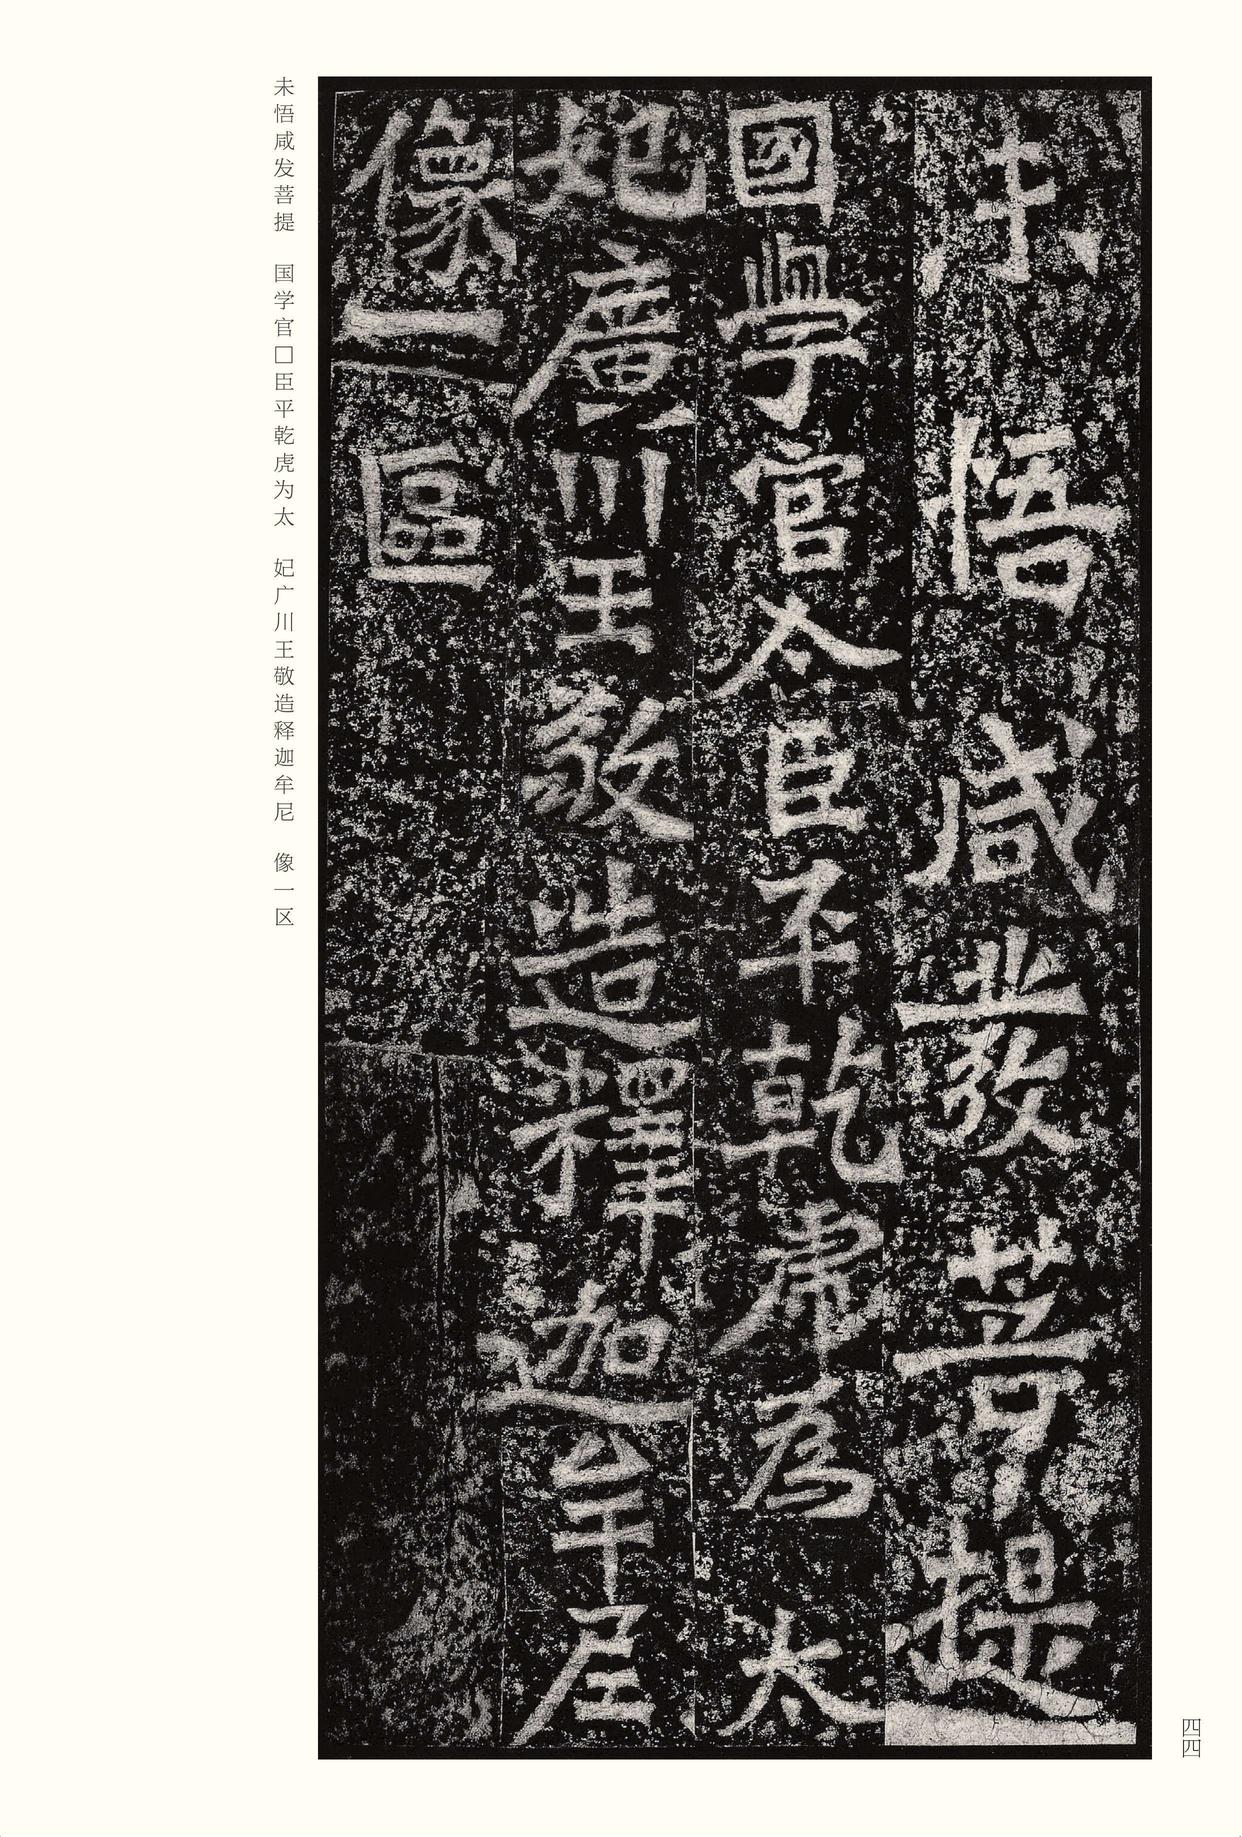 未悟咸發菩提
國學官太臣平乾虎為太
妃廣川王敬造釋迦牟尼
像一區
未悟咸发菩提　国学官□臣平乾虎为太　妃广川王敬造释迦牟尼　像一区
四四